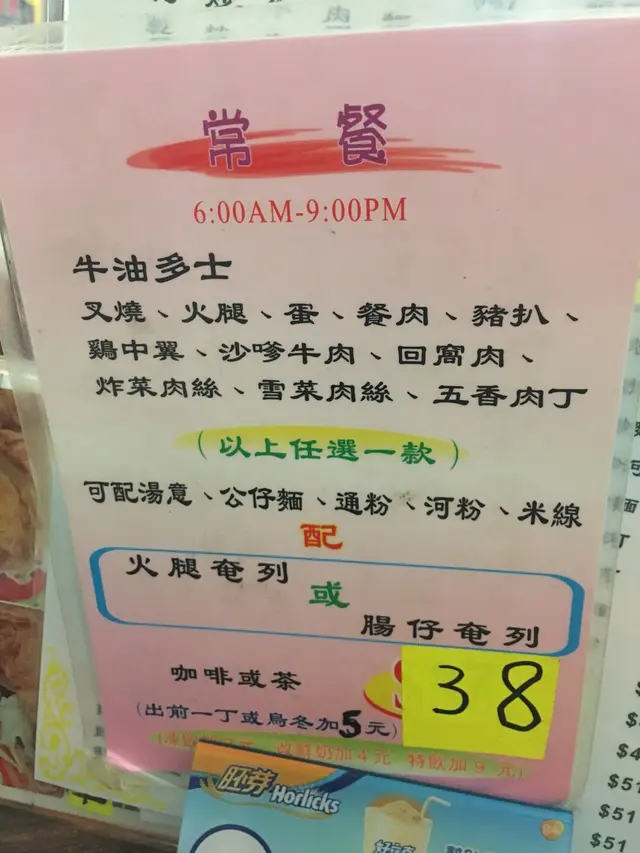 常餐
6:00AM-9:00PM
牛油多士
叉燒、火腿、蛋、餐肉、豬扒、
鷄中翼、沙嗲牛肉、回窩肉、
炸菜肉絲、雪菜肉絲、五香肉丁
（以上任選一款）
可配湯意、公仔麵、通粉、河粉、米線
配
火腿奄列
或
腸仔奄列
咖啡或茶
38
（出前一丁或烏冬加5元）
鮮奶加4元 特飲加9元）
胚芽
Horlicks
$51
$51
$51